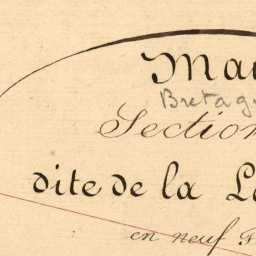 Ma
Bretag
Section
dite de la L
en neuf F